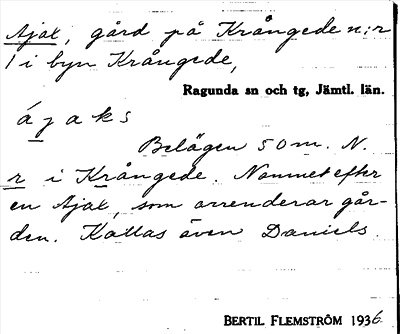 Ajax, gård på Krångede n:r
1 i byn Krångede,
Ragunda sn och tg, Jämtl. län.
ájaks
Belägen 50 m. N.
r i Krångede. Namnet efter
en Ajax, som arrenderar går-
den. Kallas även Daniels.
BERTIL FLEMSTRÖM 1936